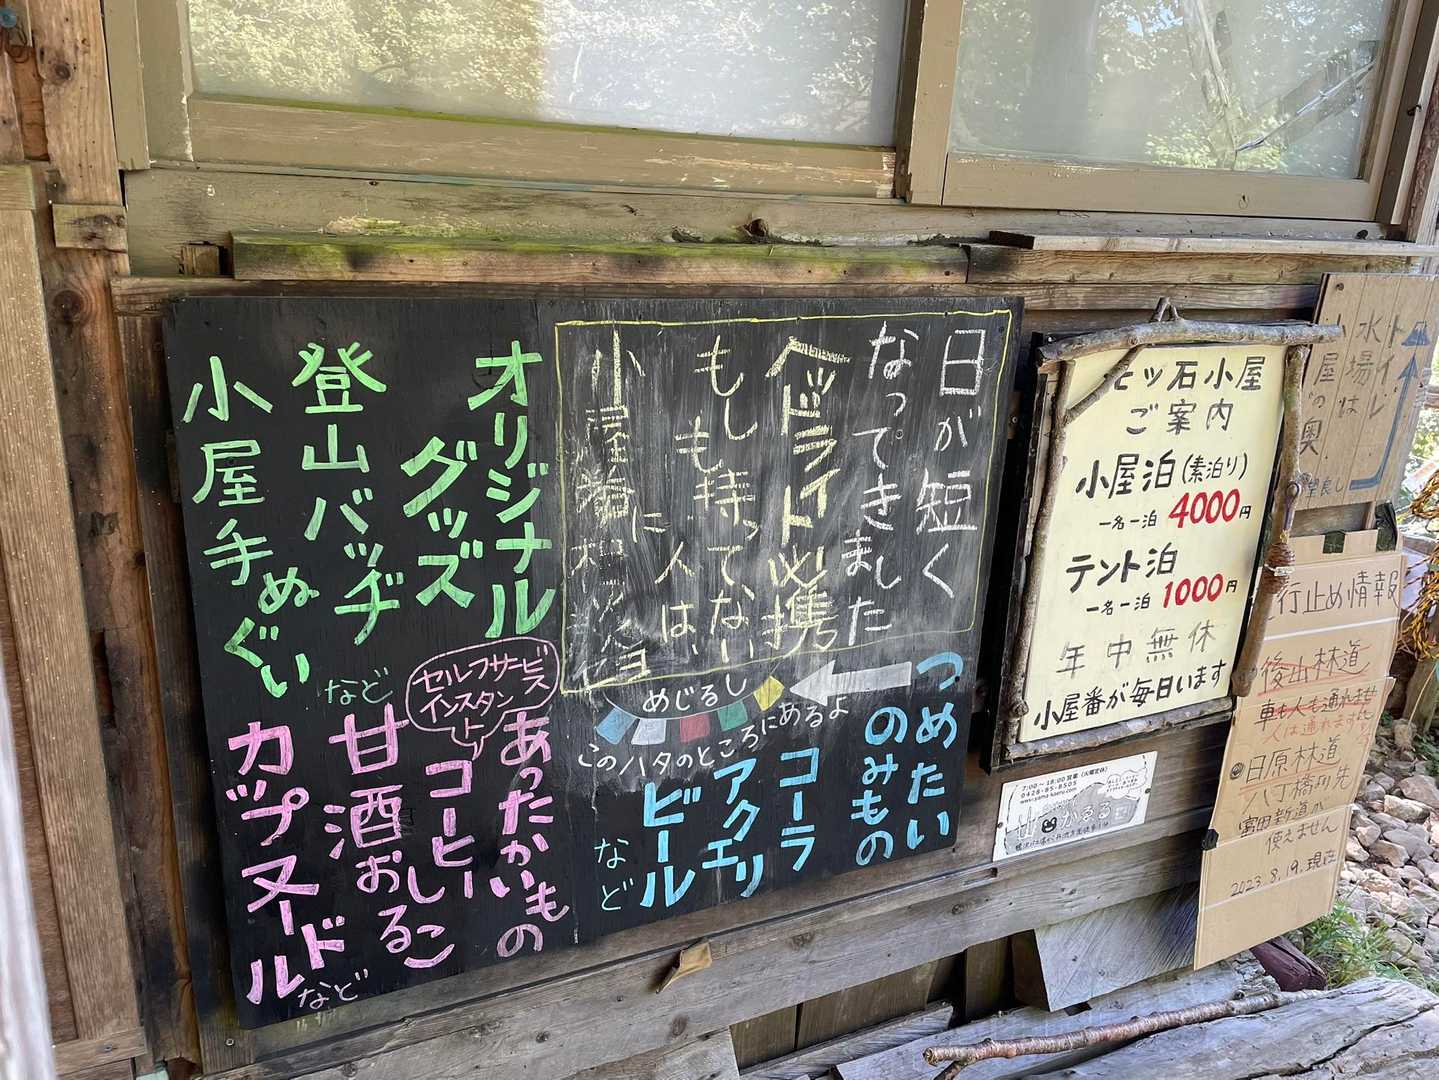 日が短く
なってきました
ヘッドライト必携
もしも持ってない
人は、
小屋番に
オリジナル
グッズ
登山バッヂ
小屋手ぬぐい
など
つめたい
のみもの
コーラ
アクエリ
ビール
など
めじるし
このハタのところにあるよ
セルフサービス
インスタント
あったかいもの
コーヒー
おしるこ
甘酒
カップヌードル
など
モツ石小屋
ご案内
小屋泊(素泊り)
一名一泊 4000円
テント泊
一名一泊 1000円
年中無休
小屋番が毎日います
7:00~18:00営業(火曜定休)
0428-85-8505
www.yama-kaeru.com
トイレ
水場は
小屋の奥
行止め情報
後山林道
車も人も通れません
人は通れます
日原林道
八丁橋より先
富田新道が
使えません
2023.8.19.現在